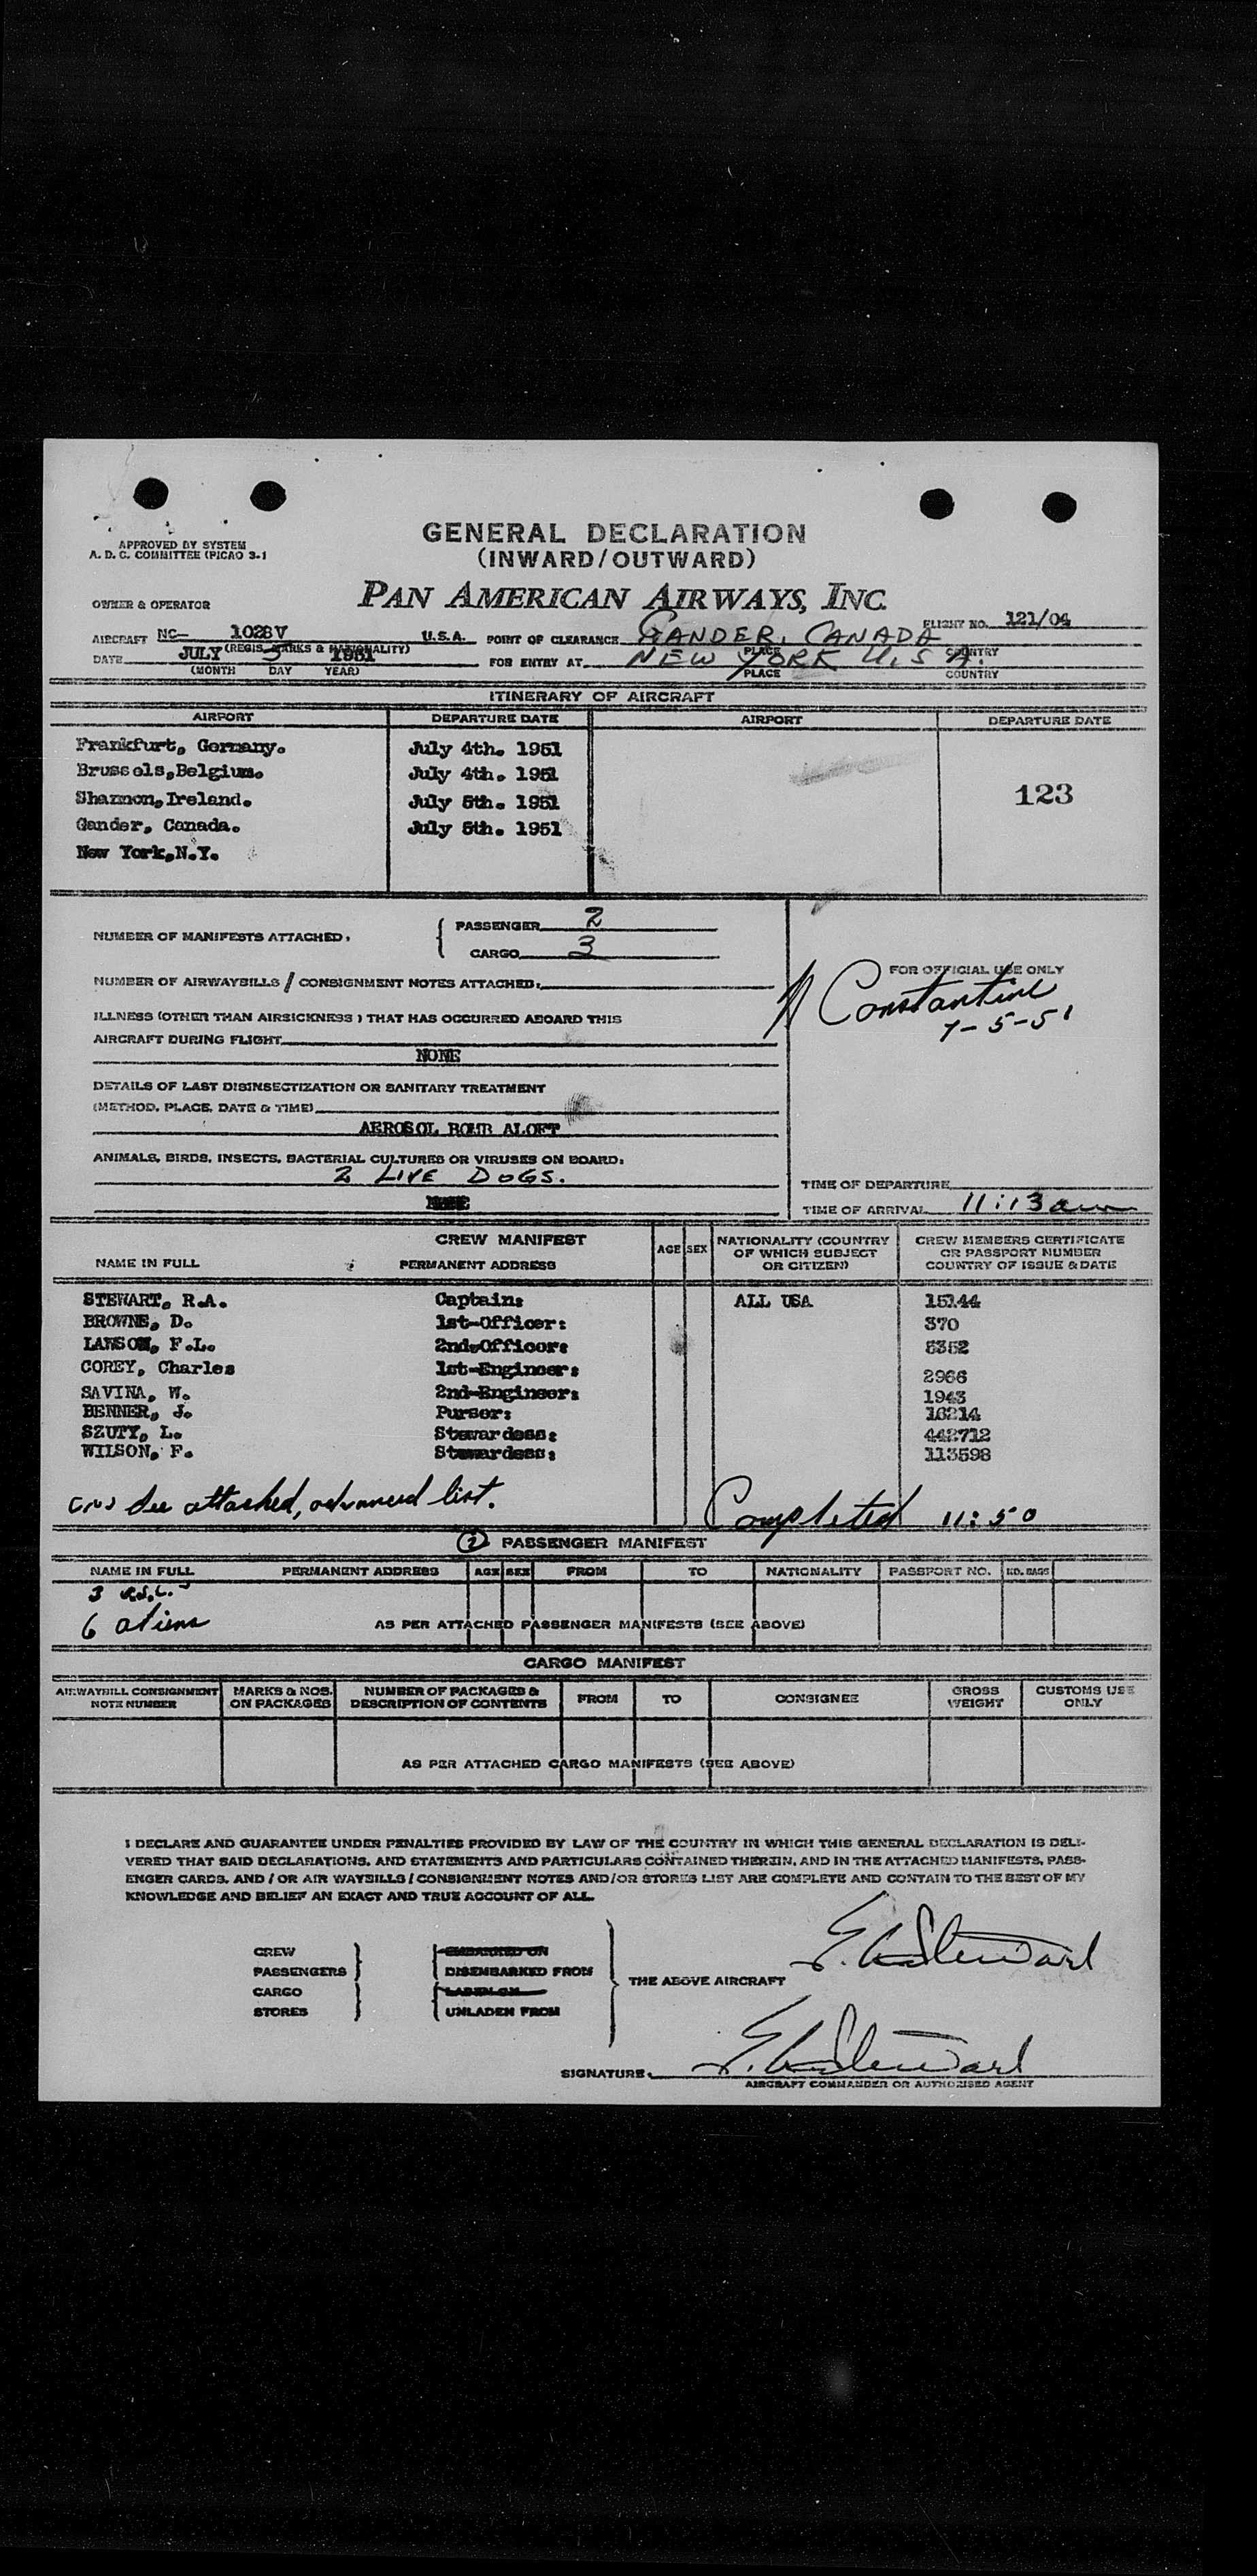 GENERAL DECLARATION
(INWARD/OUTWARD)
APPROVED BY SYSTEM
A. D. C. COMMITTEE (PICAO 3-1
PAN AMERICAN AIRWAYS, INC.
OWNER & OPERATOR
FLIGHT NO. 121/04
AIRCRAFT NC- 1028V U.S.A. POINT OF CLEARANCE GANDER, CANADA
(REGIS. MARKS & NATIONALITY) PLACE COUNTRY
DATE JULY 5 1951 FOR ENTRY AT NEW YORK U.S.A.
(MONTH DAY YEAR) PLACE COUNTRY
ITINERARY OF AIRCRAFT
AIRPORT DEPARTURE DATE AIRPORT DEPARTURE DATE
Frankfurt, Germany. July 4th. 1951
Brussels,Belgium. July 4th. 1951
Shannon,Ireland. July 5th. 1951
123
Gander, Canada. July 5th. 1951
New York,N.Y.
NUMBER OF MANIFESTS ATTACHED: PASSENGER 2
CARGO 3
NUMBER OF AIRWAYBILLS / CONSIGNMENT NOTES ATTACHED:
FOR OFFICIAL USE ONLY
Constantine
7-5-51
ILLNESS (OTHER THAN AIRSICKNESS ) THAT HAS OCCURRED ABOARD THIS
AIRCRAFT DURING FLIGHT
NONE
DETAILS OF LAST DISINSECTIZATION OR SANITARY TREATMENT
(METHOD, PLACE, DATE & TIME)
AEROSOL BOMB ALOFT
ANIMALS, BIRDS, INSECTS, BACTERIAL CULTURES OR VIRUSES ON BOARD:
2 LIVE DOGS.
TIME OF DEPARTURE
TIME OF ARRIVAL 11:13 am
CREW MANIFEST
NAME IN FULL PERMANENT ADDRESS AGE SEX NATIONALITY (COUNTRY OF WHICH SUBJECT OR CITIZEN) CREW MEMBERS CERTIFICATE OR PASSPORT NUMBER COUNTRY OF ISSUE & DATE
STEWART, R.A. Captain: ALL USA 15144
BROWNE, D. 1st-Officer: 370
LAWSON, F.L. 2nd-Officer: 5352
COREY, Charles 1st-Engineer: 2966
SAVINA, W. 2nd-Engineer: 1943
BENNER, J. Purser: 16214
SZUTY, L. Stewardess: 442712
WILSON, F. Stewardess: 113598
see attached, advanced list.
Completed 11:50
2 PASSENGER MANIFEST
NAME IN FULL PERMANENT ADDRESS AGE SEX FROM TO NATIONALITY PASSPORT NO. NO. BAGS
3
6 aliens
AS PER ATTACHED PASSENGER MANIFESTS (SEE ABOVE)
CARGO MANIFEST
AIRWAYBILL CONSIGNMENT NOTE NUMBER MARKS & NOS. ON PACKAGES NUMBER OF PACKAGES & DESCRIPTION OF CONTENTS FROM TO CONSIGNEE GROSS WEIGHT CUSTOMS USE ONLY
AS PER ATTACHED CARGO MANIFESTS (SEE ABOVE)
I DECLARE AND GUARANTEE UNDER PENALTIES PROVIDED BY LAW OF THE COUNTRY IN WHICH THIS GENERAL DECLARATION IS DELI-
VERED THAT SAID DECLARATIONS, AND STATEMENTS AND PARTICULARS CONTAINED THEREIN, AND IN THE ATTACHED MANIFESTS, PASS-
ENGER CARDS, AND / OR AIR WAYBILLS / CONSIGNMENT NOTES AND/OR STORES LIST ARE COMPLETE AND CONTAIN TO THE BEST OF MY
KNOWLEDGE AND BELIEF AN EXACT AND TRUE ACCOUNT OF ALL.
CREW EMBARKED ON
PASSENGERS DISEMBARKED FROM
THE ABOVE AIRCRAFT
CARGO LADEN ON
STORES UNLADEN FROM
SIGNATURE:
AIRCRAFT COMMANDER OR AUTHORISED AGENT